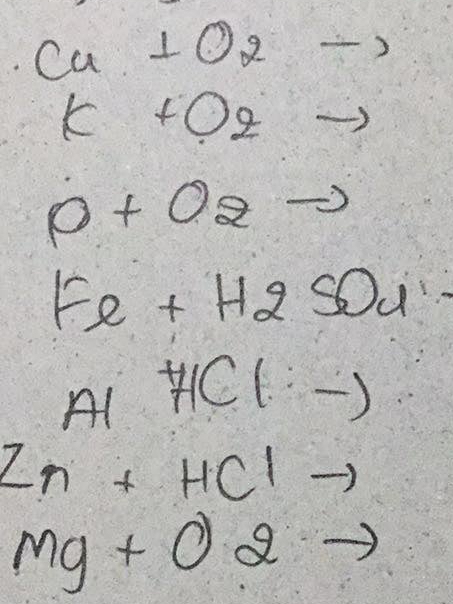 Cu + O2 →
K + O2 →
P + O2 →
Fe + H2SO4 -
Al + HCl →
Zn + HCl →
Mg + O2 →